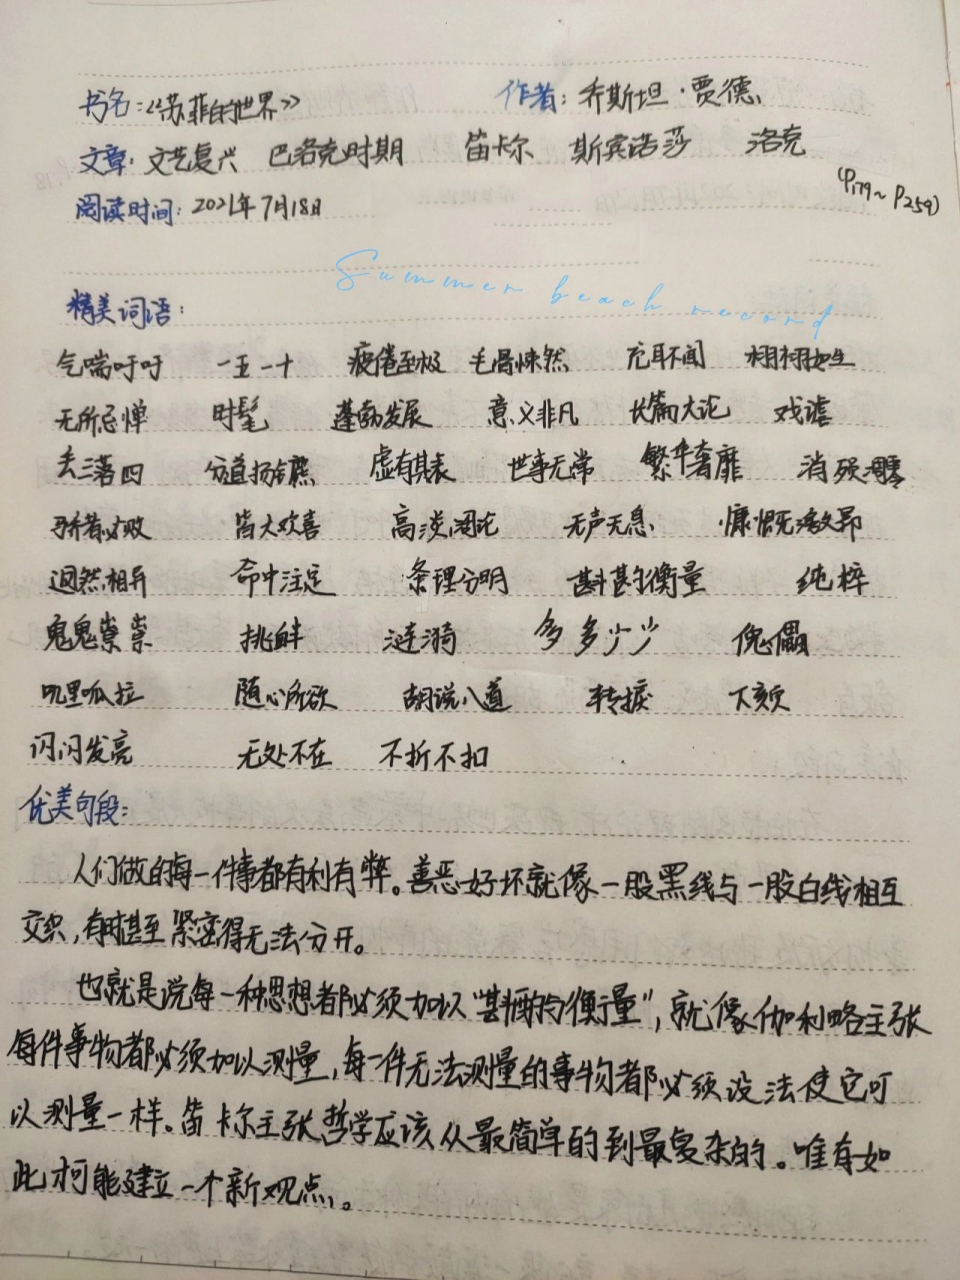 书名:《苏菲的世界》 作者:乔斯坦·贾德
文章:文艺复兴 巴洛克时期 笛卡尔 斯宾诺莎 洛克
(P179~P259)
阅读时间:2021年7月18日
Summer beach record
精美词语:
气喘吁吁 一五一十 疲倦至极 毛骨悚然 充耳不闻 栩栩如生
无所忌惮 时髦 蓬勃发展 意义非凡 长篇大论 戏谑
丢三落四 分道扬镳 虚有其表 世事无常 繁华奢靡 消殒凋零
骄者必败 皆大欢喜 高谈阔论 无声无息 慷慨激昂
迥然相异 命中注定 条理分明 斟酌衡量 纯粹
鬼鬼祟祟 挑衅 涟漪 多多少少 傀儡
叽里呱拉 随心所欲 胡说八道 转捩 下颏
闪闪发亮 无处不在 不折不扣
优美句段:
人们做的每一件事都有利有弊。善恶好坏就像一股黑线与一股白线相互
交织,有时甚至紧密得无法分开。
也就是说每一种思想者都必须加以“斟酌与衡量”,就像伽利略主张
每件事物都必须加以测量,每一件无法测量的事物都必须设法使它可
以测量一样。笛卡尔主张哲学应该从最简单的到最复杂的。唯有如
此才可能建立一个新观点。